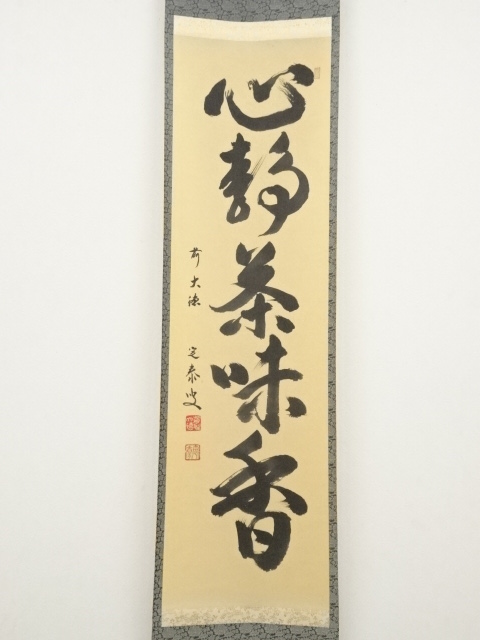 心静茶味香
前大徳 宅泰叟